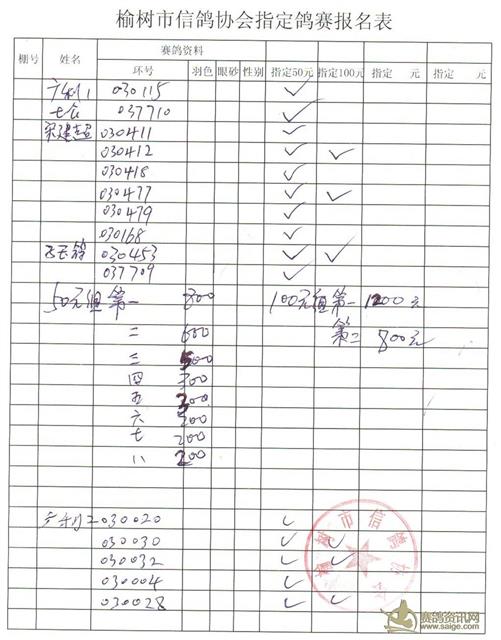 榆树市信鸽协会指定鸽赛报名表
棚号 姓名 赛鸽资料 指定50元 指定100元 指定 元 指定 元
环号 羽色 眼砂 性别
030115
037710
030411
030412
030418
030477
030479
030168
030453
037709
50元组第一 800 100元组第一 1200元
二 600 第二 800元
三 500
四 300
五 200
六 200
七 200
八 200
030020
030030
030032
030004
030028
榆树市信鸽协会
赛鸽资讯网
www.saige.com